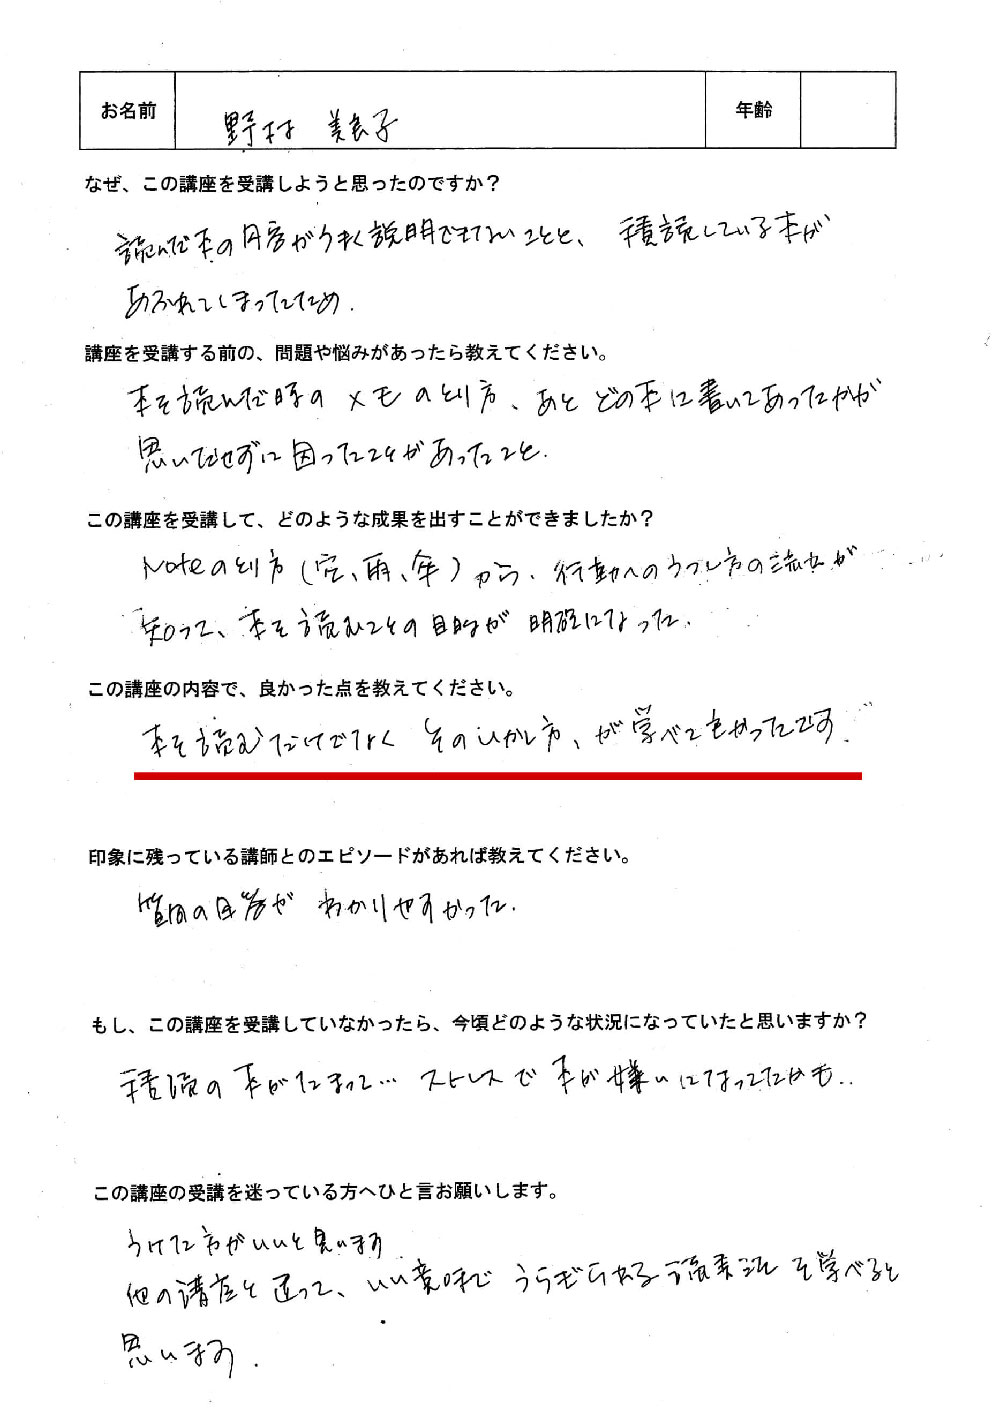 お名前 野村 美良子 年齢
なぜ、この講座を受講しようと思ったのですか？
読んだ本の内容がうまく説明できてないことと、積読している本が
あふれてしまってたため.
講座を受講する前の、問題や悩みがあったら教えてください。
本を読んだ時のメモのとり方、あとどの本に書いてあったかが
思いだせずに困ったことがあったこと.
この講座を受講して、どのような成果を出すことができましたか？
Noteのとり方（空、雨、傘）から、行動へのうつし方の流れが
知って、本を読むことの目的が明確になった.
この講座の内容で、良かった点を教えてください。
本を読むだけでなく そのいかし方、が学べてよかったです.
印象に残っている講師とのエピソードがあれば教えてください。
質問の回答が わかりやすかった.
もし、この講座を受講していなかったら、今頃どのような状況になっていたと思いますか？
積読の本がたまって… ストレスで本が嫌いになってたかも..
この講座の受講を迷っている方へひと言お願いします。
うけた方がいいと思います
他の講座と違って、いい意味でうらぎられる読書法を学べると
思います.